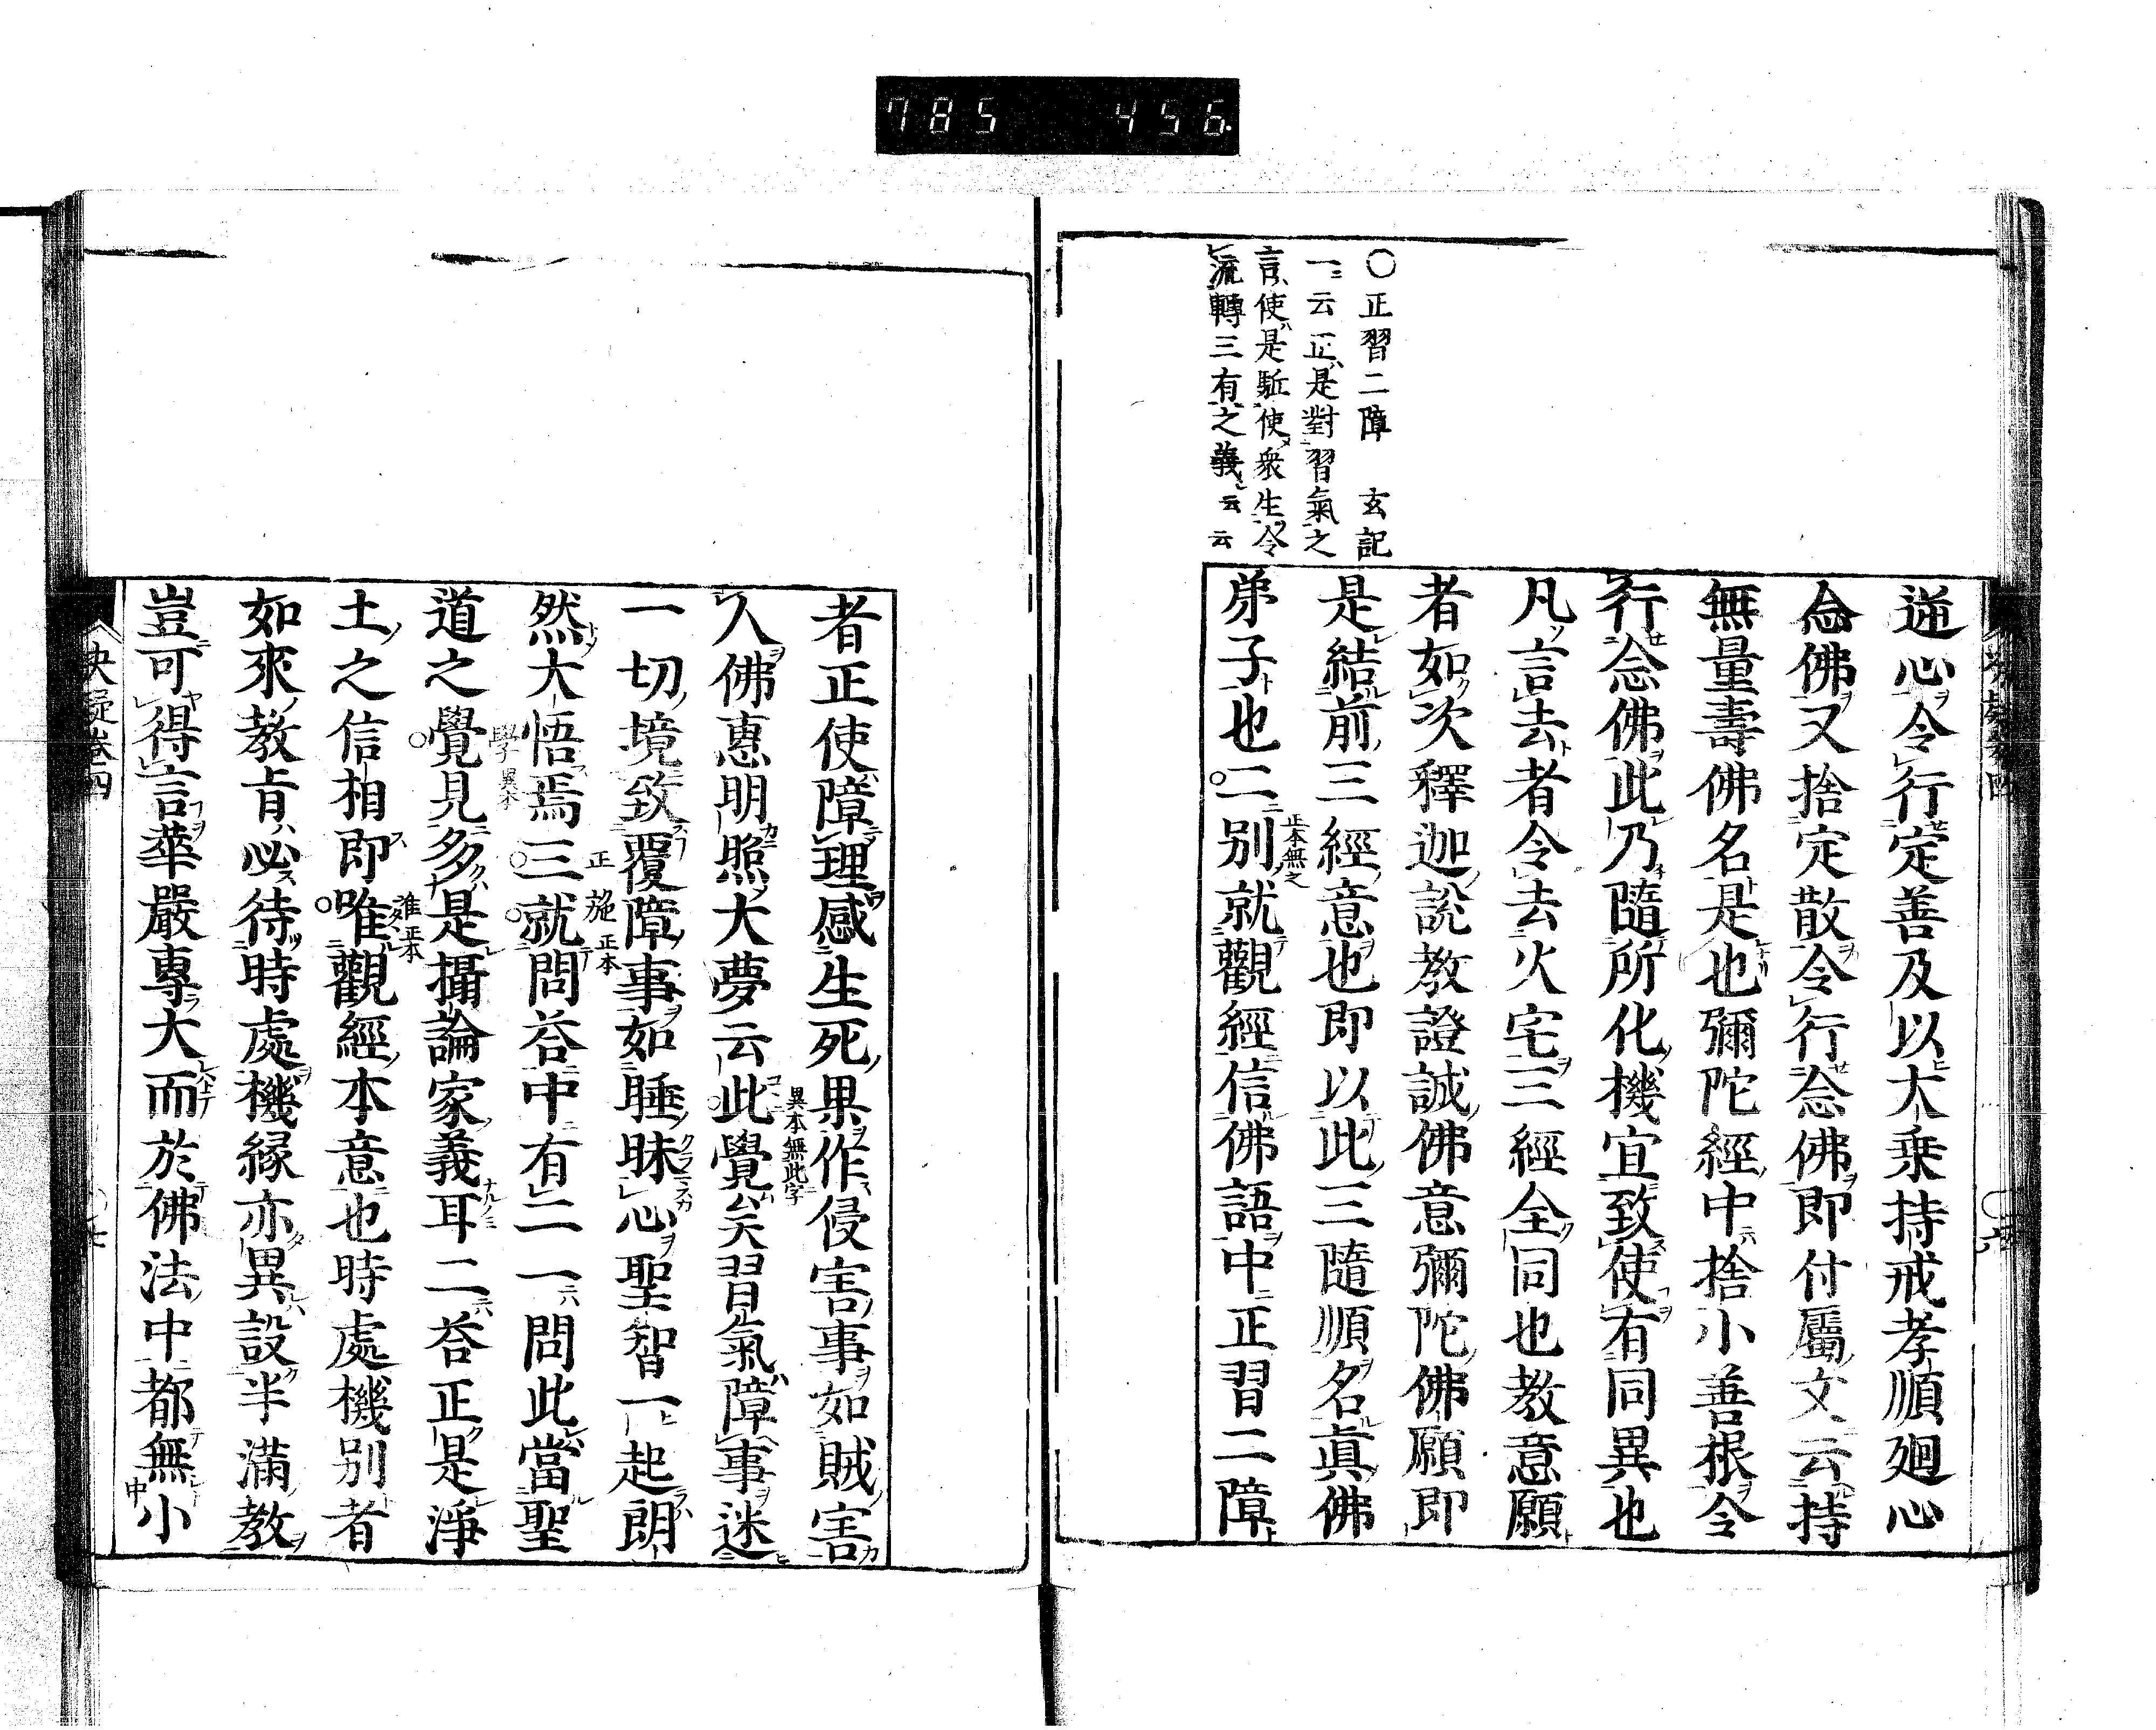 785 456
○正習二障 玄記
一ニ云正ハ是對習氣之
言使ハ是駈使衆生令
流轉三有之義云云
遊心令行定善及以大乗持戒孝順廻心
念佛又捨定散令行念佛即付屬文云持
無量壽佛名是也彌陀經中捨小善根令
行念佛此乃隨所化機宜致使有同異也
凡言去者令去火宅三經全同也教意願
者如次釋迦説教證誠佛意彌陀佛願即
是結前三經意也即以此三隨順名眞佛
弟子也二別就觀經信佛語中正習二障
正本無之
者正使障理感生死果作侵害事如賊害
人佛惠明照大夢云此覺矣習氣障事迷
異本無此字
一切境致覆障事如睡昧心聖智一起朗
然大悟焉三就問荅中有二一問此當聖
正 施 正本
道之覺見多是攝論家義耳二荅正是淨
學異本
土之信相即唯觀經本意也時處機別者
准正本
如來教旨必待時處機縁亦異設半滿教
豈可得言華嚴專大而於佛法中都無小
決疑卷四